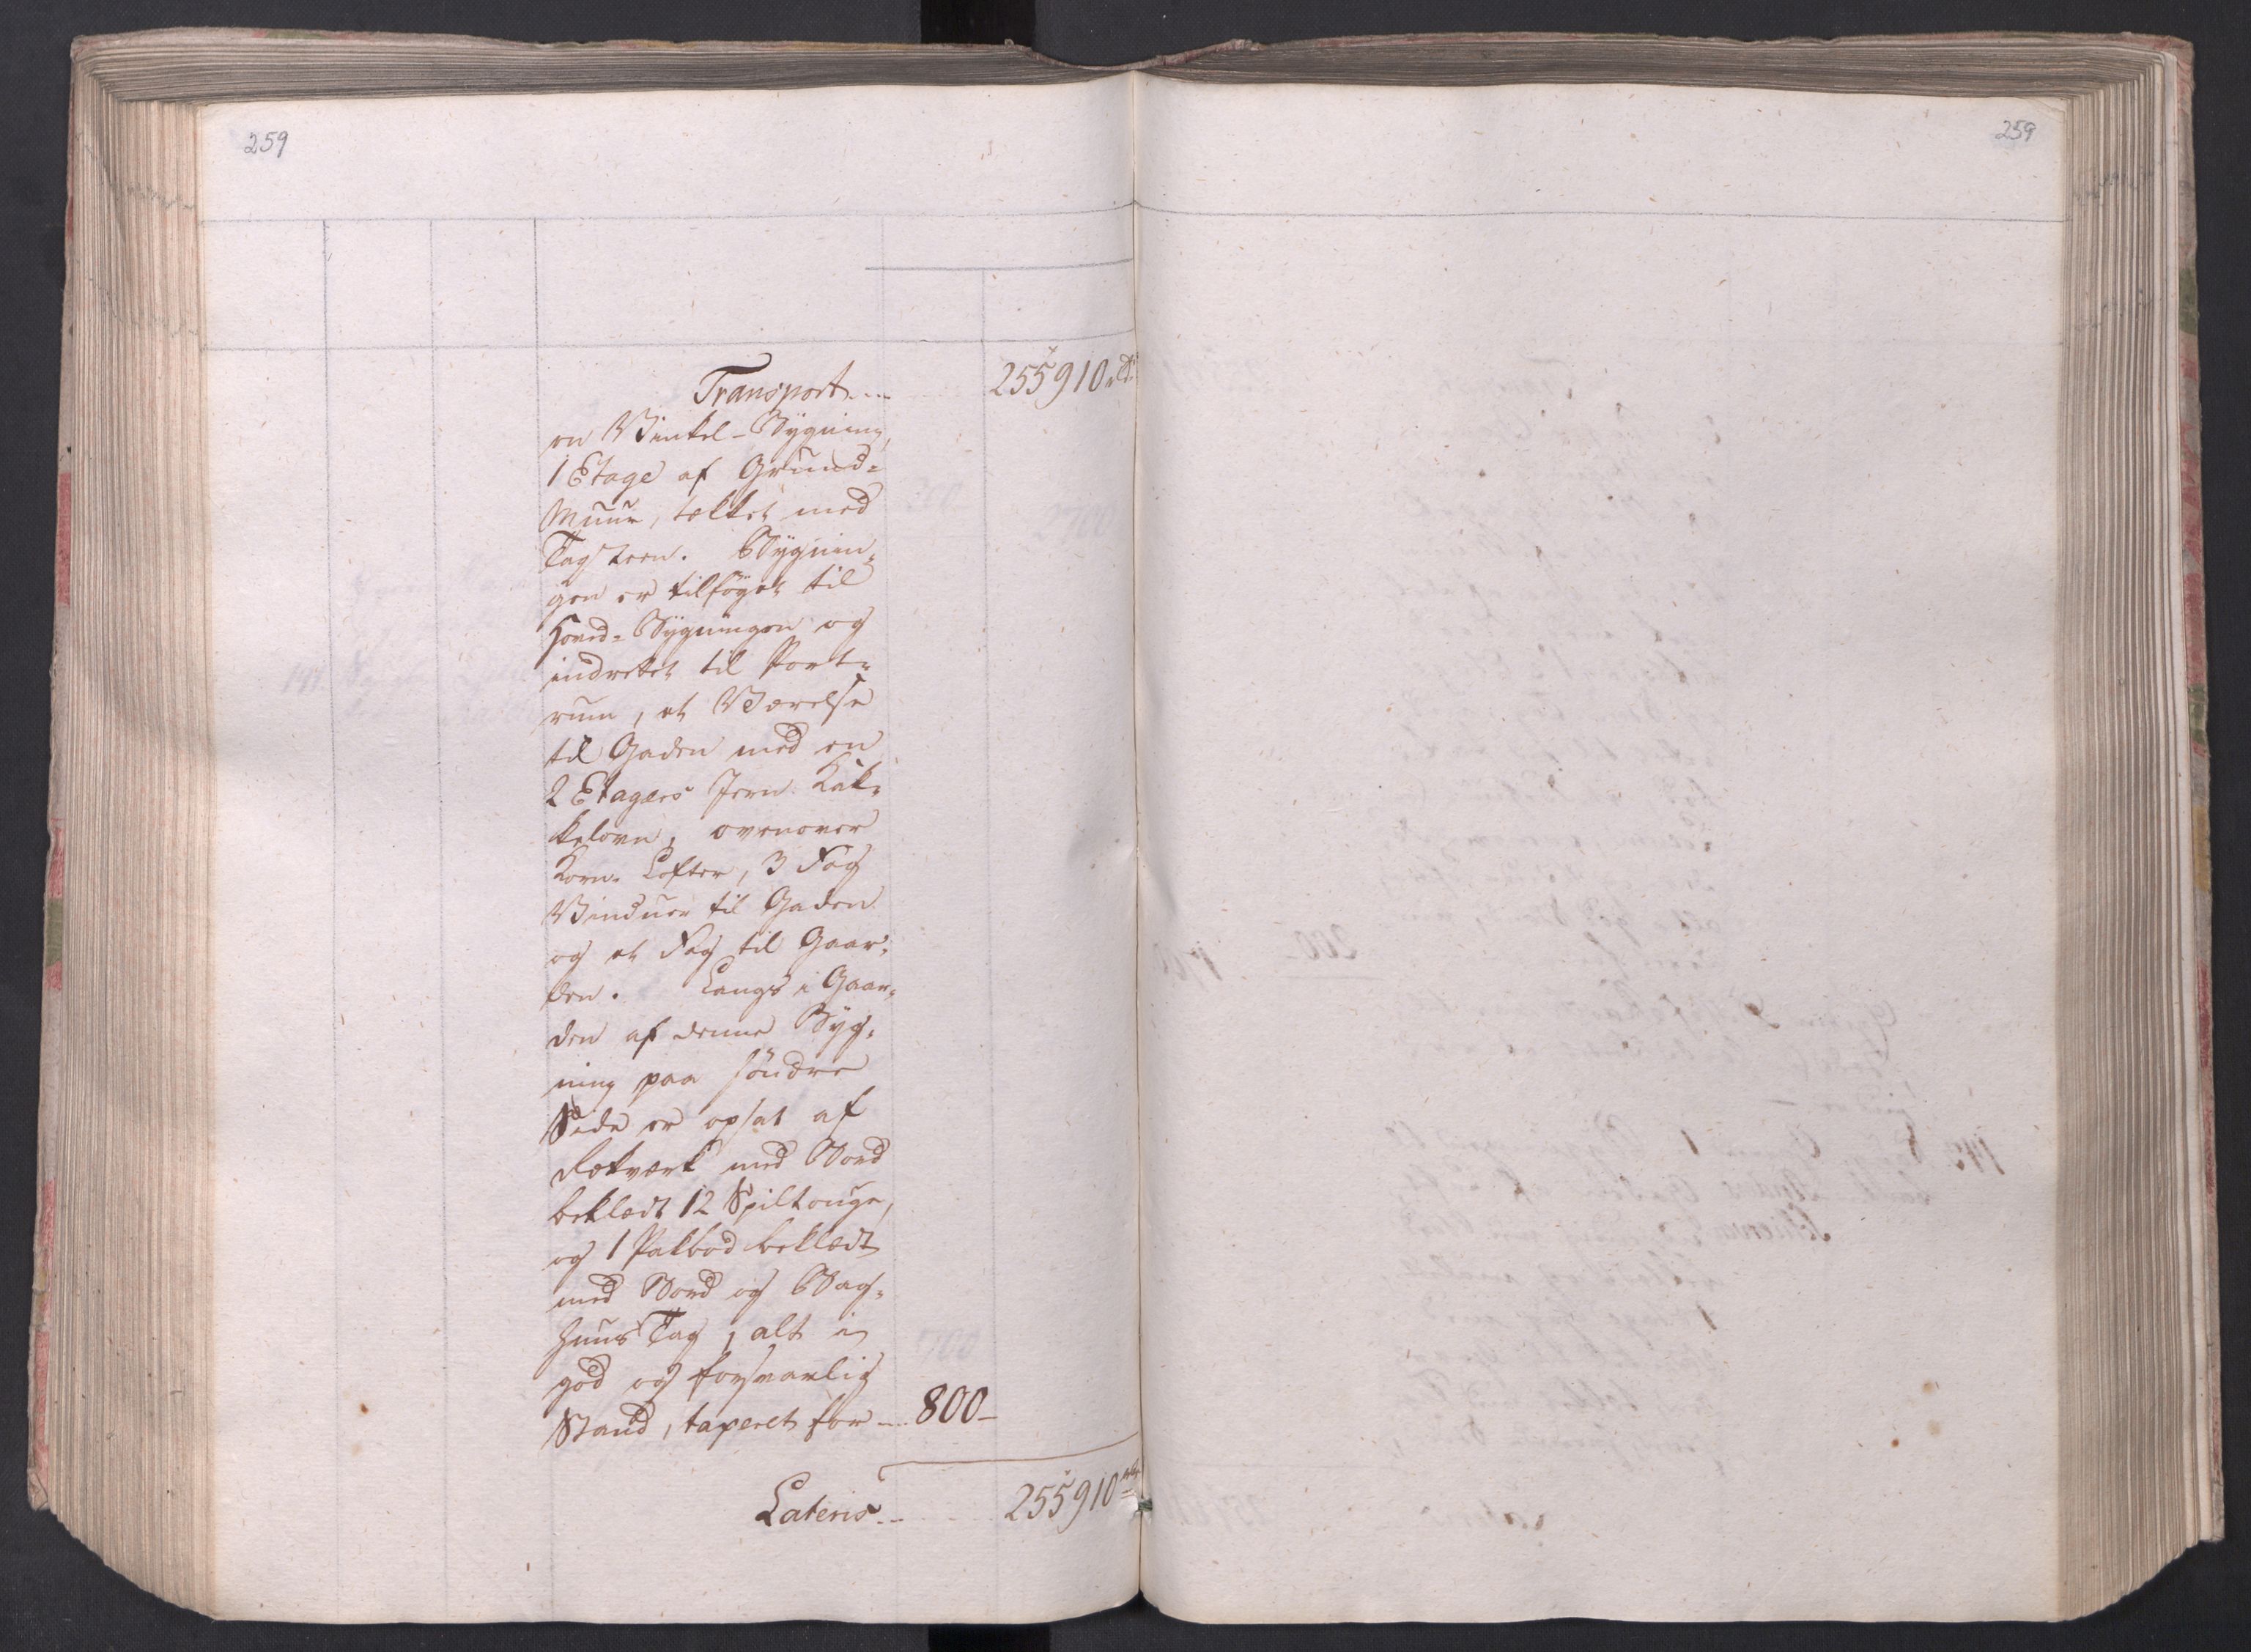 259
259
Transport....
255910 rd.
en Vinkel-Bygning,
1 Etage af Grund=
Muur, tækket med
Tagsteen. Bygnin=
gen er tilføyet til
Hoved=Bygningen og
indrettet til Port=
rum, et Værelse
til Gaden med en
2 Etagers Jern Kak=
kelovn, ovenover
Korn Lofter, 3 Fag
Vinduer til Gaden
og et Fag til Gaar=
den. Langs i Gaar=
den af denne Byg=
ning paa søndre
Side er opsat af
Rekværk med Bord
beklædt 12 Spiltouge,
og 1 Pakbod beklædt
med Bord og Bag=
huus Tag, alt i
god og forsvarlig
Stand, taxeret for ... 800_
Lateris ... 255910 rd.